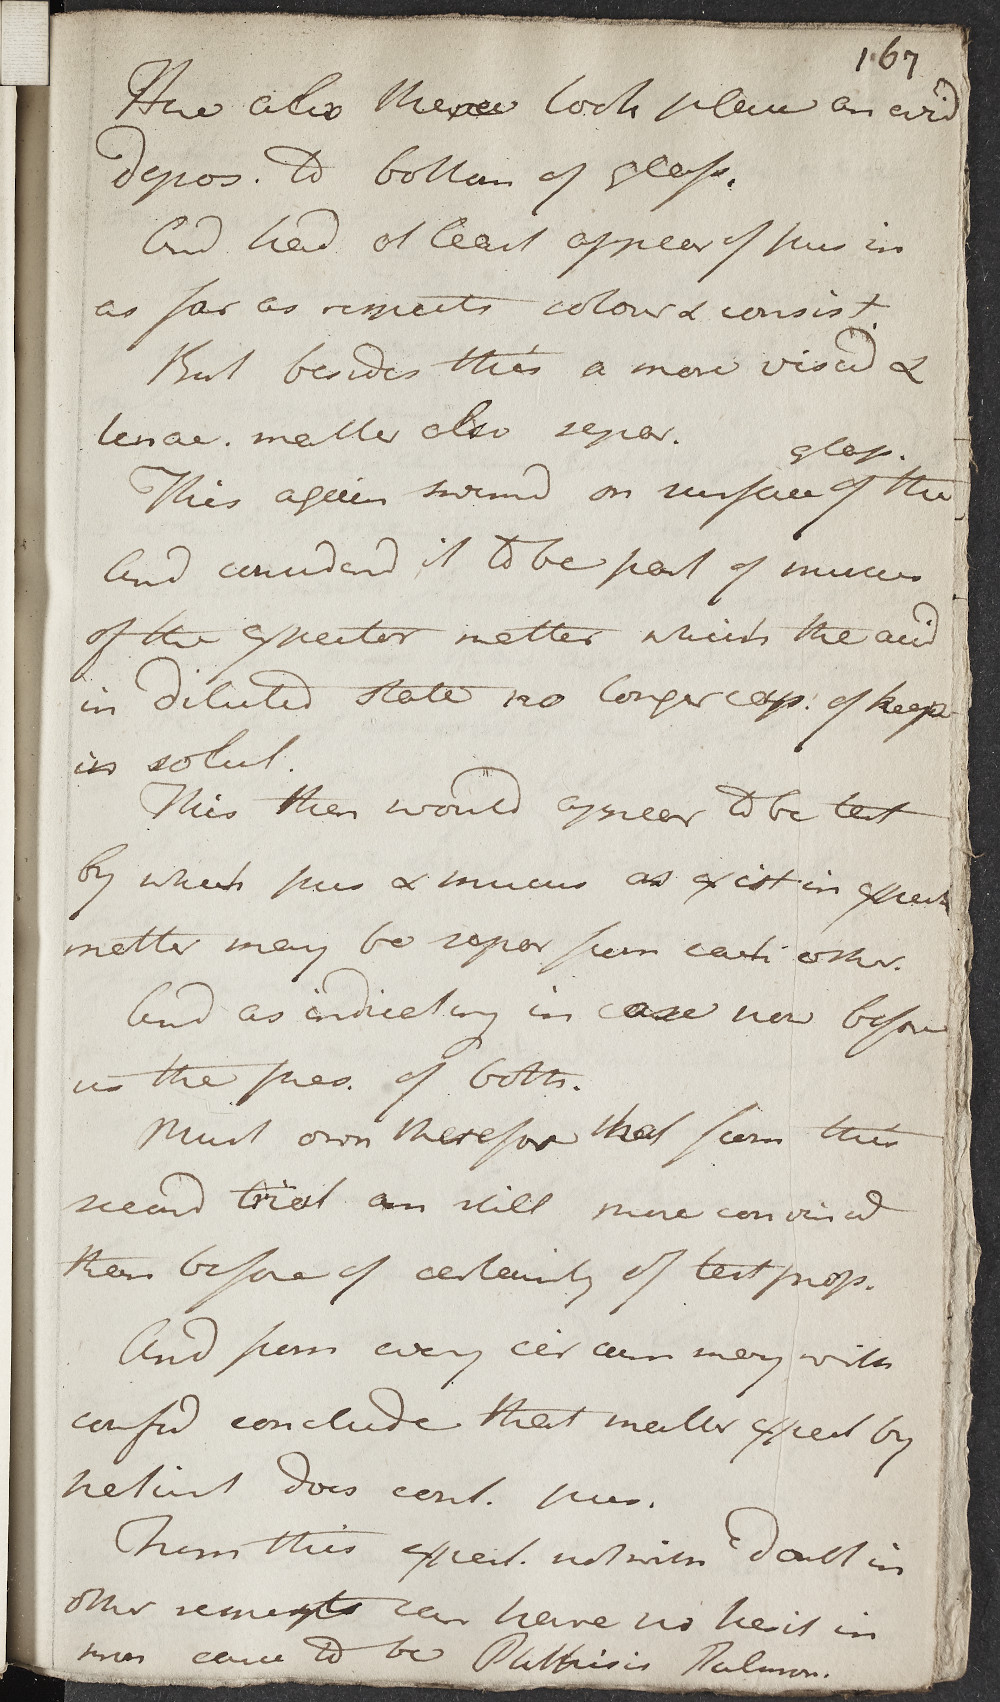 167
Here also there took place an evid
depos. to bottom of glass.
And had at least appear of pus in
as far as respects colour & consist.
But besides this a more viscid &
tenac. matter also separ.
glass.
This again swimd on surface of the
And considerd it to be part of mucus
of the expector matter which the acid
in diluted state no longer cap. of keep
in solut.
This then would appear to be test
by which pus & mucus as exist in expect
matter may be separ from each other.
And as indicating in case now before
us the pres. of both.
Must own therefor that from this
second trial am still more convincd
than before of certainty of test prop.
And from every circum may with
confid conclude that matter expect by
patient does cont. pus.
From this expect. notwith doubt in
other respects can have no hesit in
pron case to be Phthisis Pulmon.